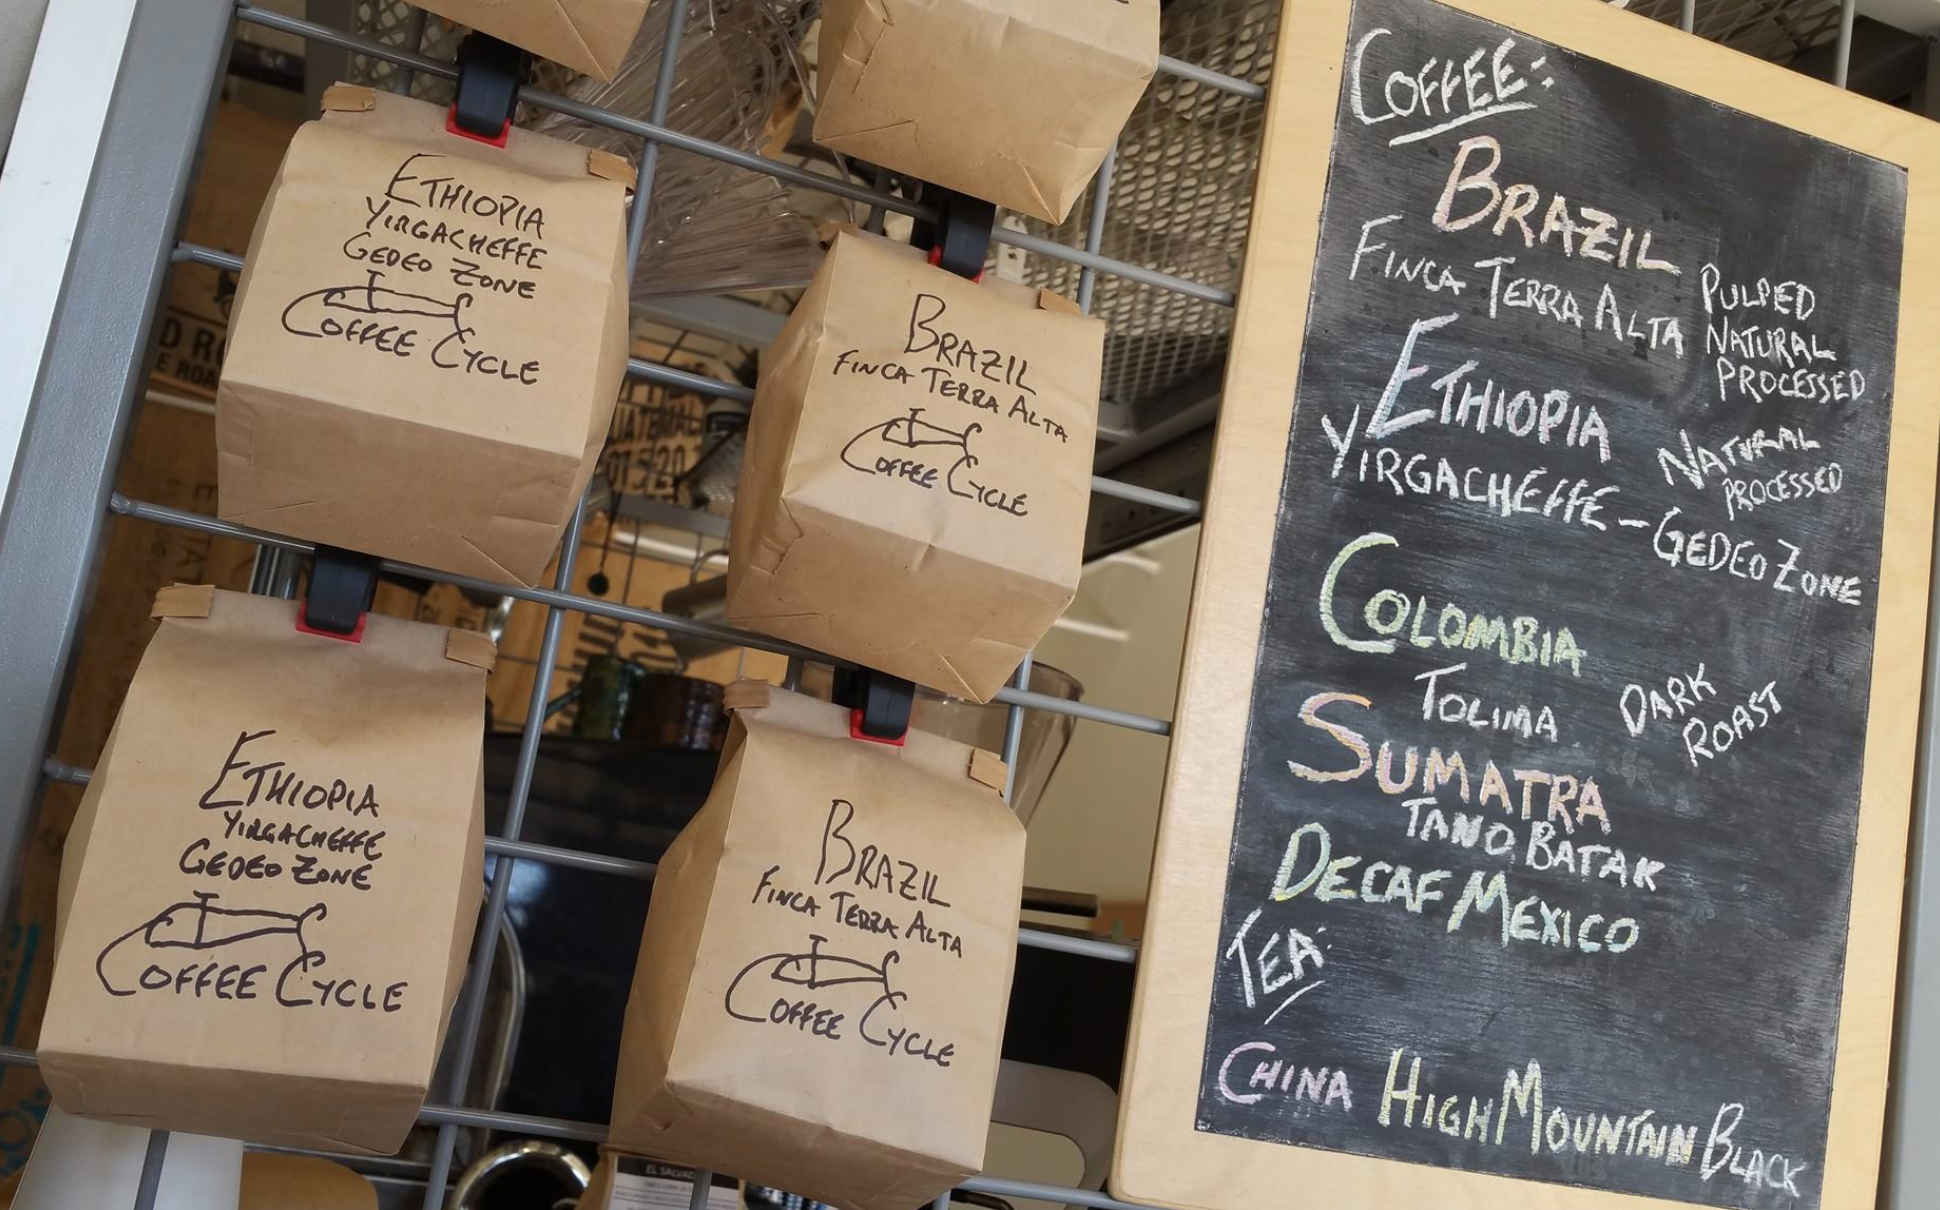 ETHIOPIA
YIRGACHEFFE
GEDEO ZONE
COFFEE CYCLE
BRAZIL
FINCA TERRA ALTA
COFFEE CYCLE
ETHIOPIA
YIRGACHEFFE
GEDEO ZONE
COFFEE CYCLE
BRAZIL
FINCA TERRA ALTA
COFFEE CYCLE
COFFEE:
BRAZIL
FINCA TERRA ALTA
PULPED
NATURAL
PROCESSED
ETHIOPIA
YIRGACHEFFE - GEDEO ZONE
NATURAL
PROCESSED
COLOMBIA
TOLIMA
DARK
ROAST
SUMATRA
TANO BATAK
DECAF MEXICO
TEA:
CHINA HIGH MOUNTAIN BLACK